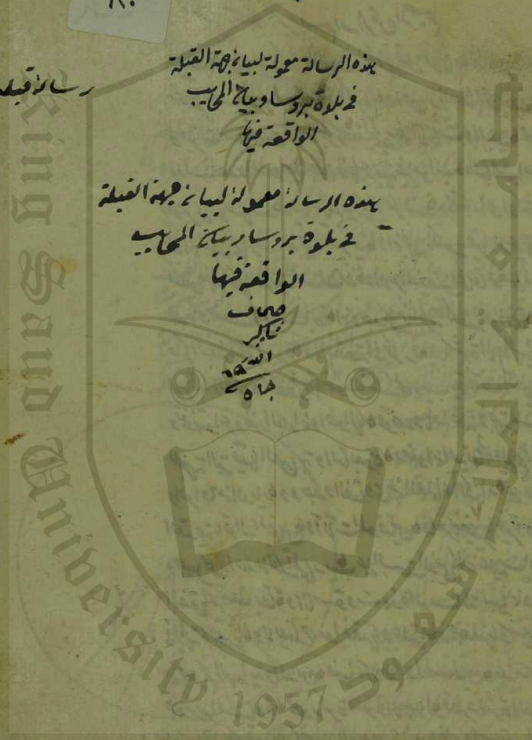 ٨٠
رسالة قبله
هذه الرسالة معمولة لبيان جهة القبلة
في بلدة بروسا وبيان المحاريب
الواقعة فيها
هذه الرسالة معمولة لبيان جهة القبلة
في بلدة بروسا وبيان المحاريب
الواقعة فيها
صحاف
الله
جامعة الملك سعود
King Saud University
1957